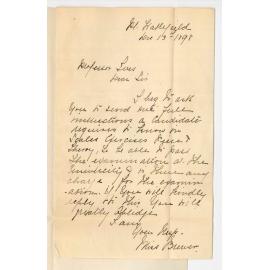 Mt Wakefield
Dec 13th 1898
Professor Ives
Dear Sir
I beg to ask
you to send me full
instructions a Candidate
requires to know on
Scales Exercises Pieces &
Theory, to be able to pass
the examination at the
University & is there any
charge for the examin-
ation. If you will kindly
reply to this you will
greatly oblige
I am
Yours Resp.
Miss Brewer